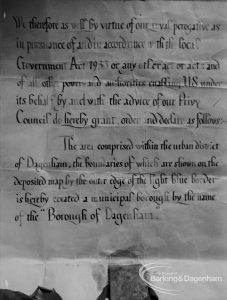 We therefore as well by virtue of our royal perogative as
in pursuance of and in accordance with the Local
Government Act 1933 or any other act or acts and
of all other powers and authorities enabling US under
its behalf by and with the advice of our Privy
Council do hereby grant, order and declare as follows:-
The area comprised within the urban district
of Dagenham, the boundaries of which are shown on the
deposited map by the outer edge of the light blue border
is hereby created a municipal borough by the name
of the "Borough of Dagenham.
Barking & Dagenham